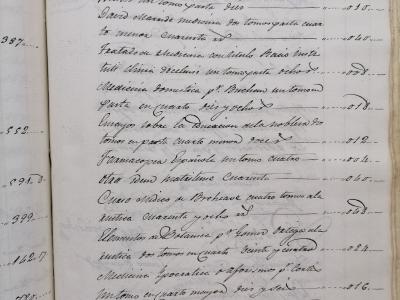 un tomo parte dies ... 010.
David Macride medicina dos tomos parte cuar
to menor cuarenta rs ... 040.
387. Tratado de Medicina con titulo Ratio inste
tuti clinici docelsis un tomo parte ocho rs ... 008.
Medicina domestica pr. Buchan un tomo en
parte en cuarto dies y ocho rs ... 018.
Ensayos sobre la educacion de la nobleza do
552. tomos en parte cuarto menor doce rs ... 012.
Farmacopea Española un tomo cuatro ... 004.
591. 8. otra idem matritense cuarenta ... 040.
Curso Medico de Brohave cuatro tomos ala
399. rustica cuarenta y ocho rs ... 048.
Elementos de Botanica pr. Gomez Ortega ala
142.17. rustica dos tomos en cuarto veinte y cuatro ... 024.
Medicina Ypocratica o aforismos pr.
un tomo en cuarto mayor dies y seis ... 016.